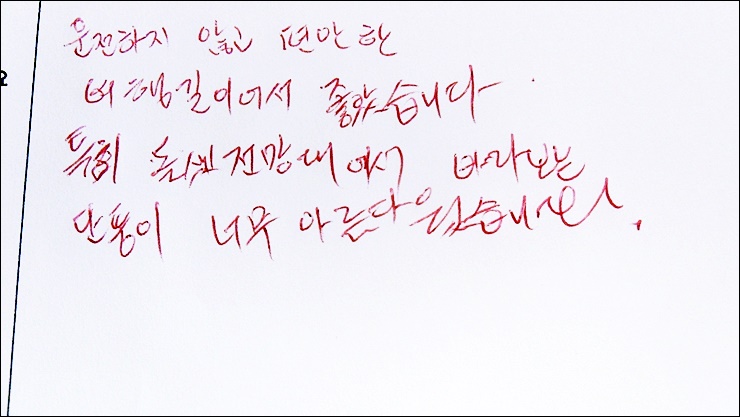 운전하지 않고 편안한
버행길이어서 좋았습니다
특히 놀샘전망대에서 바라보는
단풍이 너무 아름다웠습니다.